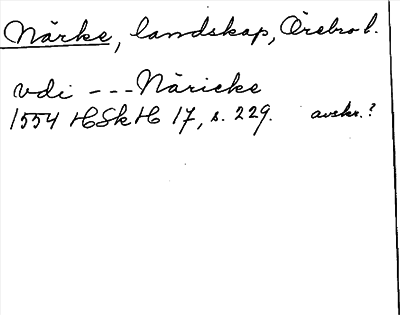 Närke, landskap, Örebro l.
vdi --- Näricke
1554 HSkH 17, s. 229. avskr.?